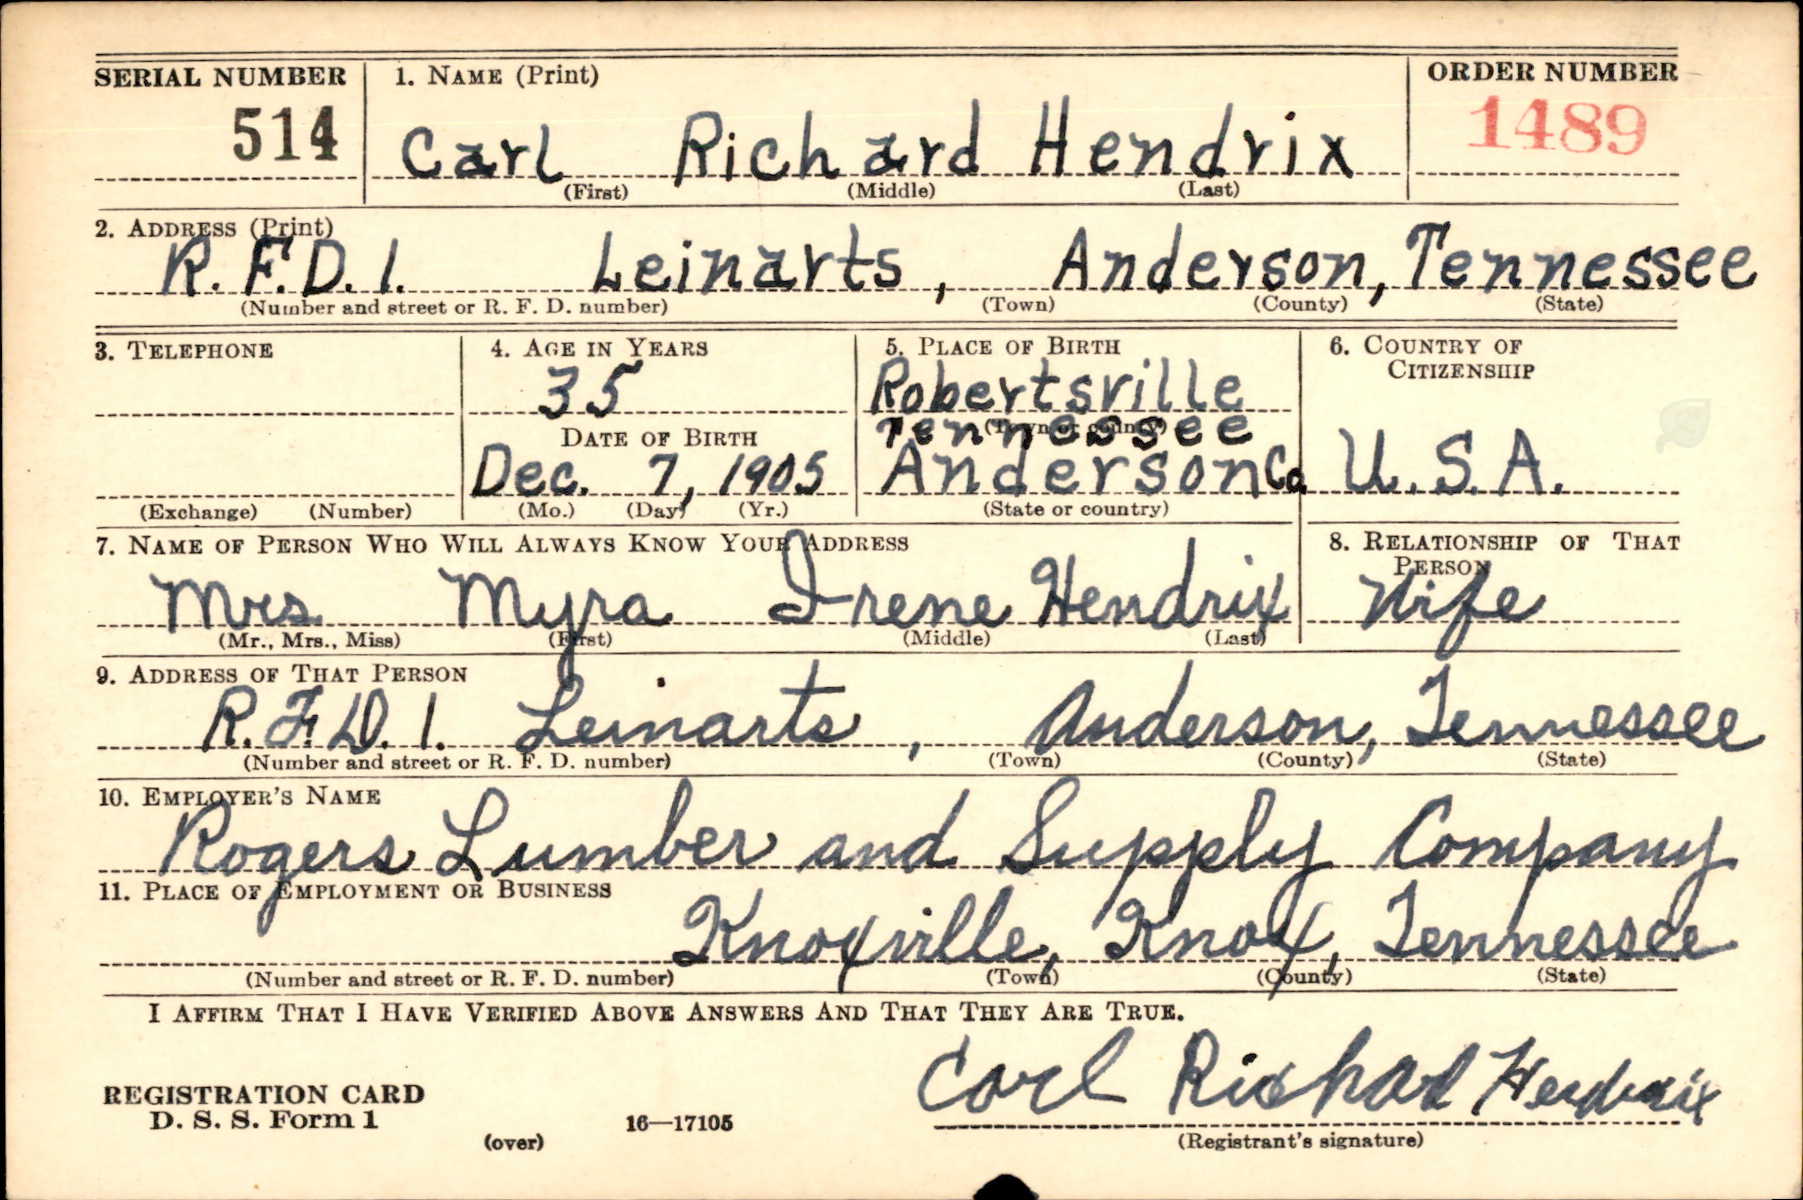 SERIAL NUMBER 1. NAME (Print) ORDER NUMBER
514 Carl Richard Hendrix 1489
(First) (Middle) (Last)
2. ADDRESS (Print)
R.F.D. 1. Leinarts, Anderson, Tennessee
(Number and street or R. F. D. number) (Town) (County) (State)
3. TELEPHONE 4. AGE IN YEARS 5. PLACE OF BIRTH 6. COUNTRY OF CITIZENSHIP
35 Robertsville
(Town or county)
Tennessee
DATE OF BIRTH
Dec. 7, 1905 Anderson Co U.S.A.
(Exchange) (Number) (Mo.) (Day) (Yr.) (State or country)
7. NAME OF PERSON WHO WILL ALWAYS KNOW YOUR ADDRESS 8. RELATIONSHIP OF THAT PERSON
Mrs. Myra Irene Hendrix Wife
(Mr., Mrs., Miss) (First) (Middle) (Last)
9. ADDRESS OF THAT PERSON
R.F.D. 1. Leinarts, Anderson, Tennessee
(Number and street or R. F. D. number) (Town) (County) (State)
10. EMPLOYER'S NAME
Rogers Lumber and Supply Company
11. PLACE OF EMPLOYMENT OR BUSINESS
Knoxville, Knox, Tennessee
(Number and street or R. F. D. number) (Town) (County) (State)
I AFFIRM THAT I HAVE VERIFIED ABOVE ANSWERS AND THAT THEY ARE TRUE.
Carl Richard Hendrix
REGISTRATION CARD
D. S. S. Form 1 16—17105
(over) (Registrant's signature)